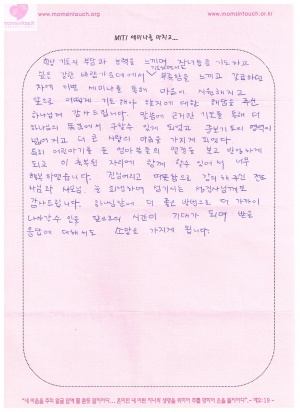 www.momsintouch.org
www.momsintouch.or.kr
MITI 세미나를 마치고...
항상 기도의 부담과 능력을 느끼며 자녀들을 기도하고
싶은 강한 바램가운데에서 부족함을 느끼고 갈급하던
차에 이번 세미나를 통해 마음이 시원해지고
앞으로 어떻게 기도해야 할지에 대한 해답을 주신
하나님께 감사드립니다. 말씀에 근거한 기도를 통해 더
하나님의 뜻 구할수 있게 되었고 중보기도의 영역이
넓어지고 더 큰 사랑의 마음을 가지게 되었다
특히 어린아기를 둔 엄마들의 열정을 보고 반성하게
되고 이 축복된 자리에 함께 할수 있어서 너무
행복하였습니다. 진심어리고 강의해 주신 전도
사님과 사모님, 또 희생하며 섬기시는 께도
감사드립니다. 하나님안에 더 좋은 방법으로 더 가까이
나아갈수 있을 앞으로의 시간이 기대가 되며 받을
응답에 대해서도 소망을 가지게 됩니다.
"네 마음을 주의 얼굴 앞에 물 쏟듯 할지어다... 네 어린 자녀의 생명을 위하여 주를 향하여 손을 들지어다" - 애2:19 -